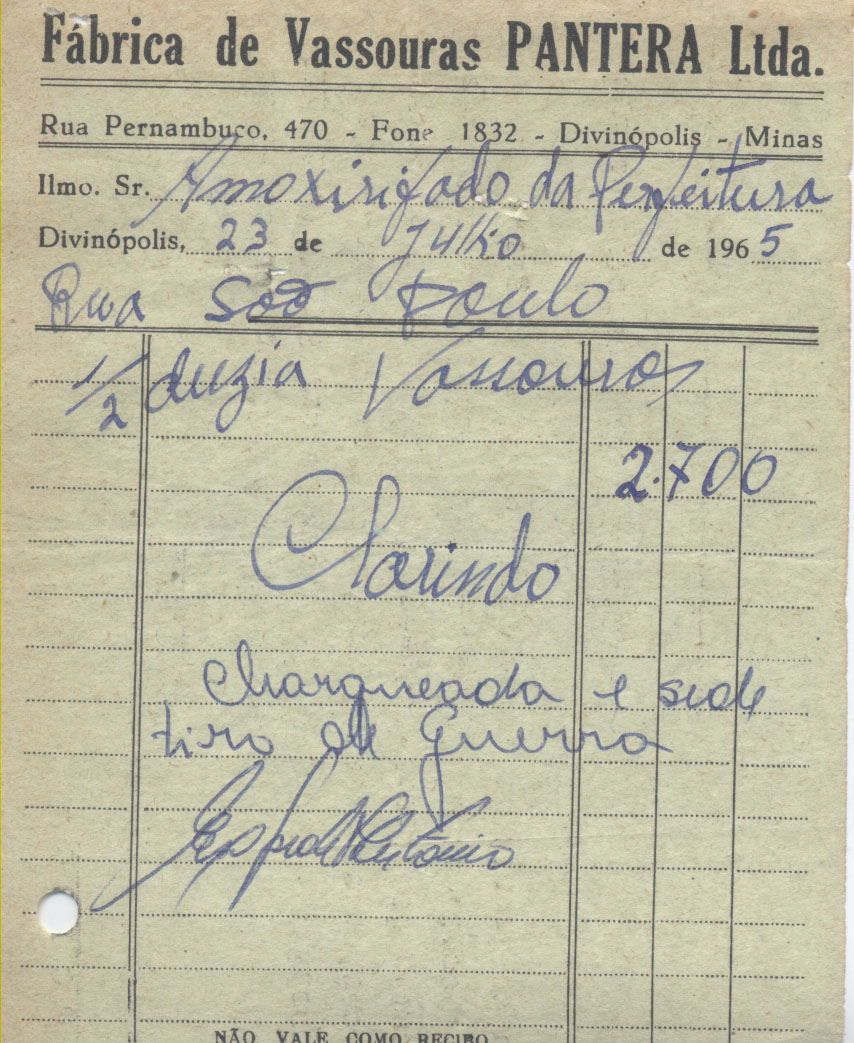 Fábrica de Vassouras PANTERA Ltda.
Rua Pernambuco, 470 - Fone 1832 - Divinópolis - Minas
Ilmo. Sr. Amoxirifado da Perfeitura
Divinópolis, 23 de Julho de 1965
Rua São Paulo
1/2 duzia Vassouras
2.700
Clarindo
Charqueada e sede
tiro de Guerra
Antônio
NÃO VALE COMO RECIBO